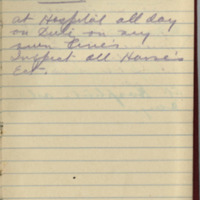 at Hospital all day
on Duti on my
own Lines.
Inspect all Horse's
Ect.